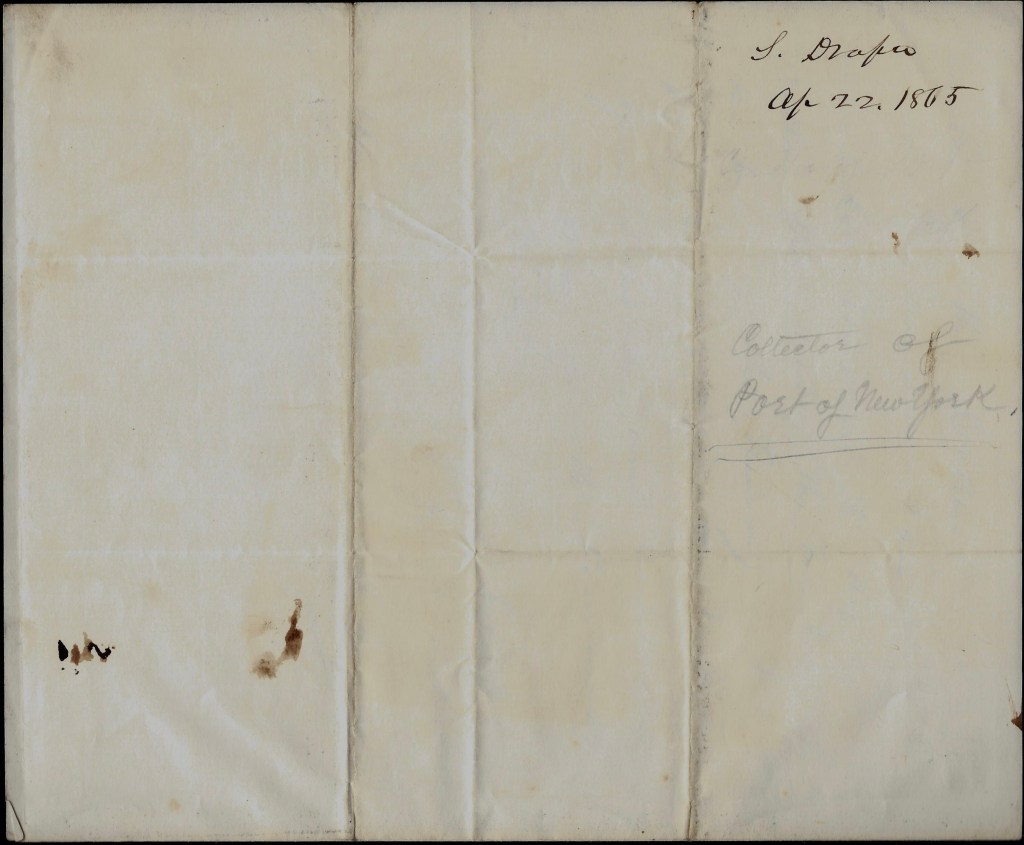 S. Draper
Ap 22. 1865
Collector of
Port of New York.